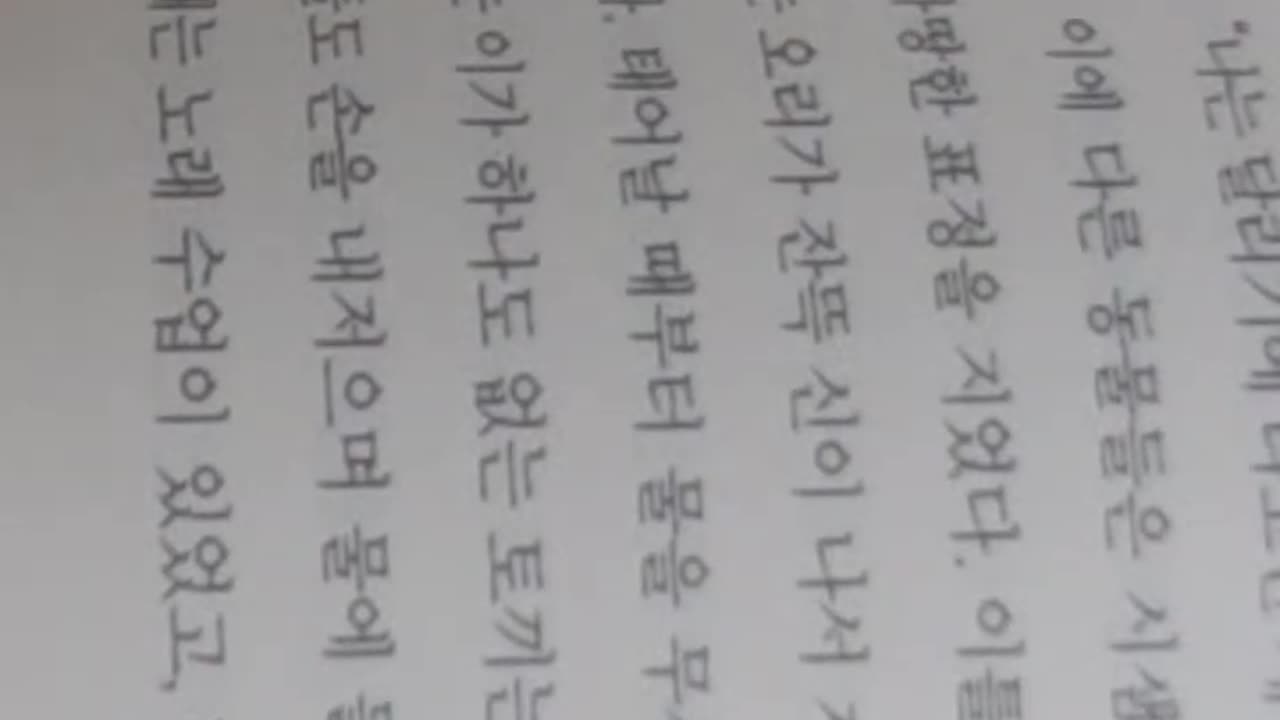 "나는 달리기에
이에 다른 동물들은 시샘
땅한 표정을 지었다. 이를
오리가 잔뜩 신이 나서
태어날 때부터 물을 무
이가 하나도 없는 토끼는
도 손을 내저으며 물에
는 노래 수업이 있었고,